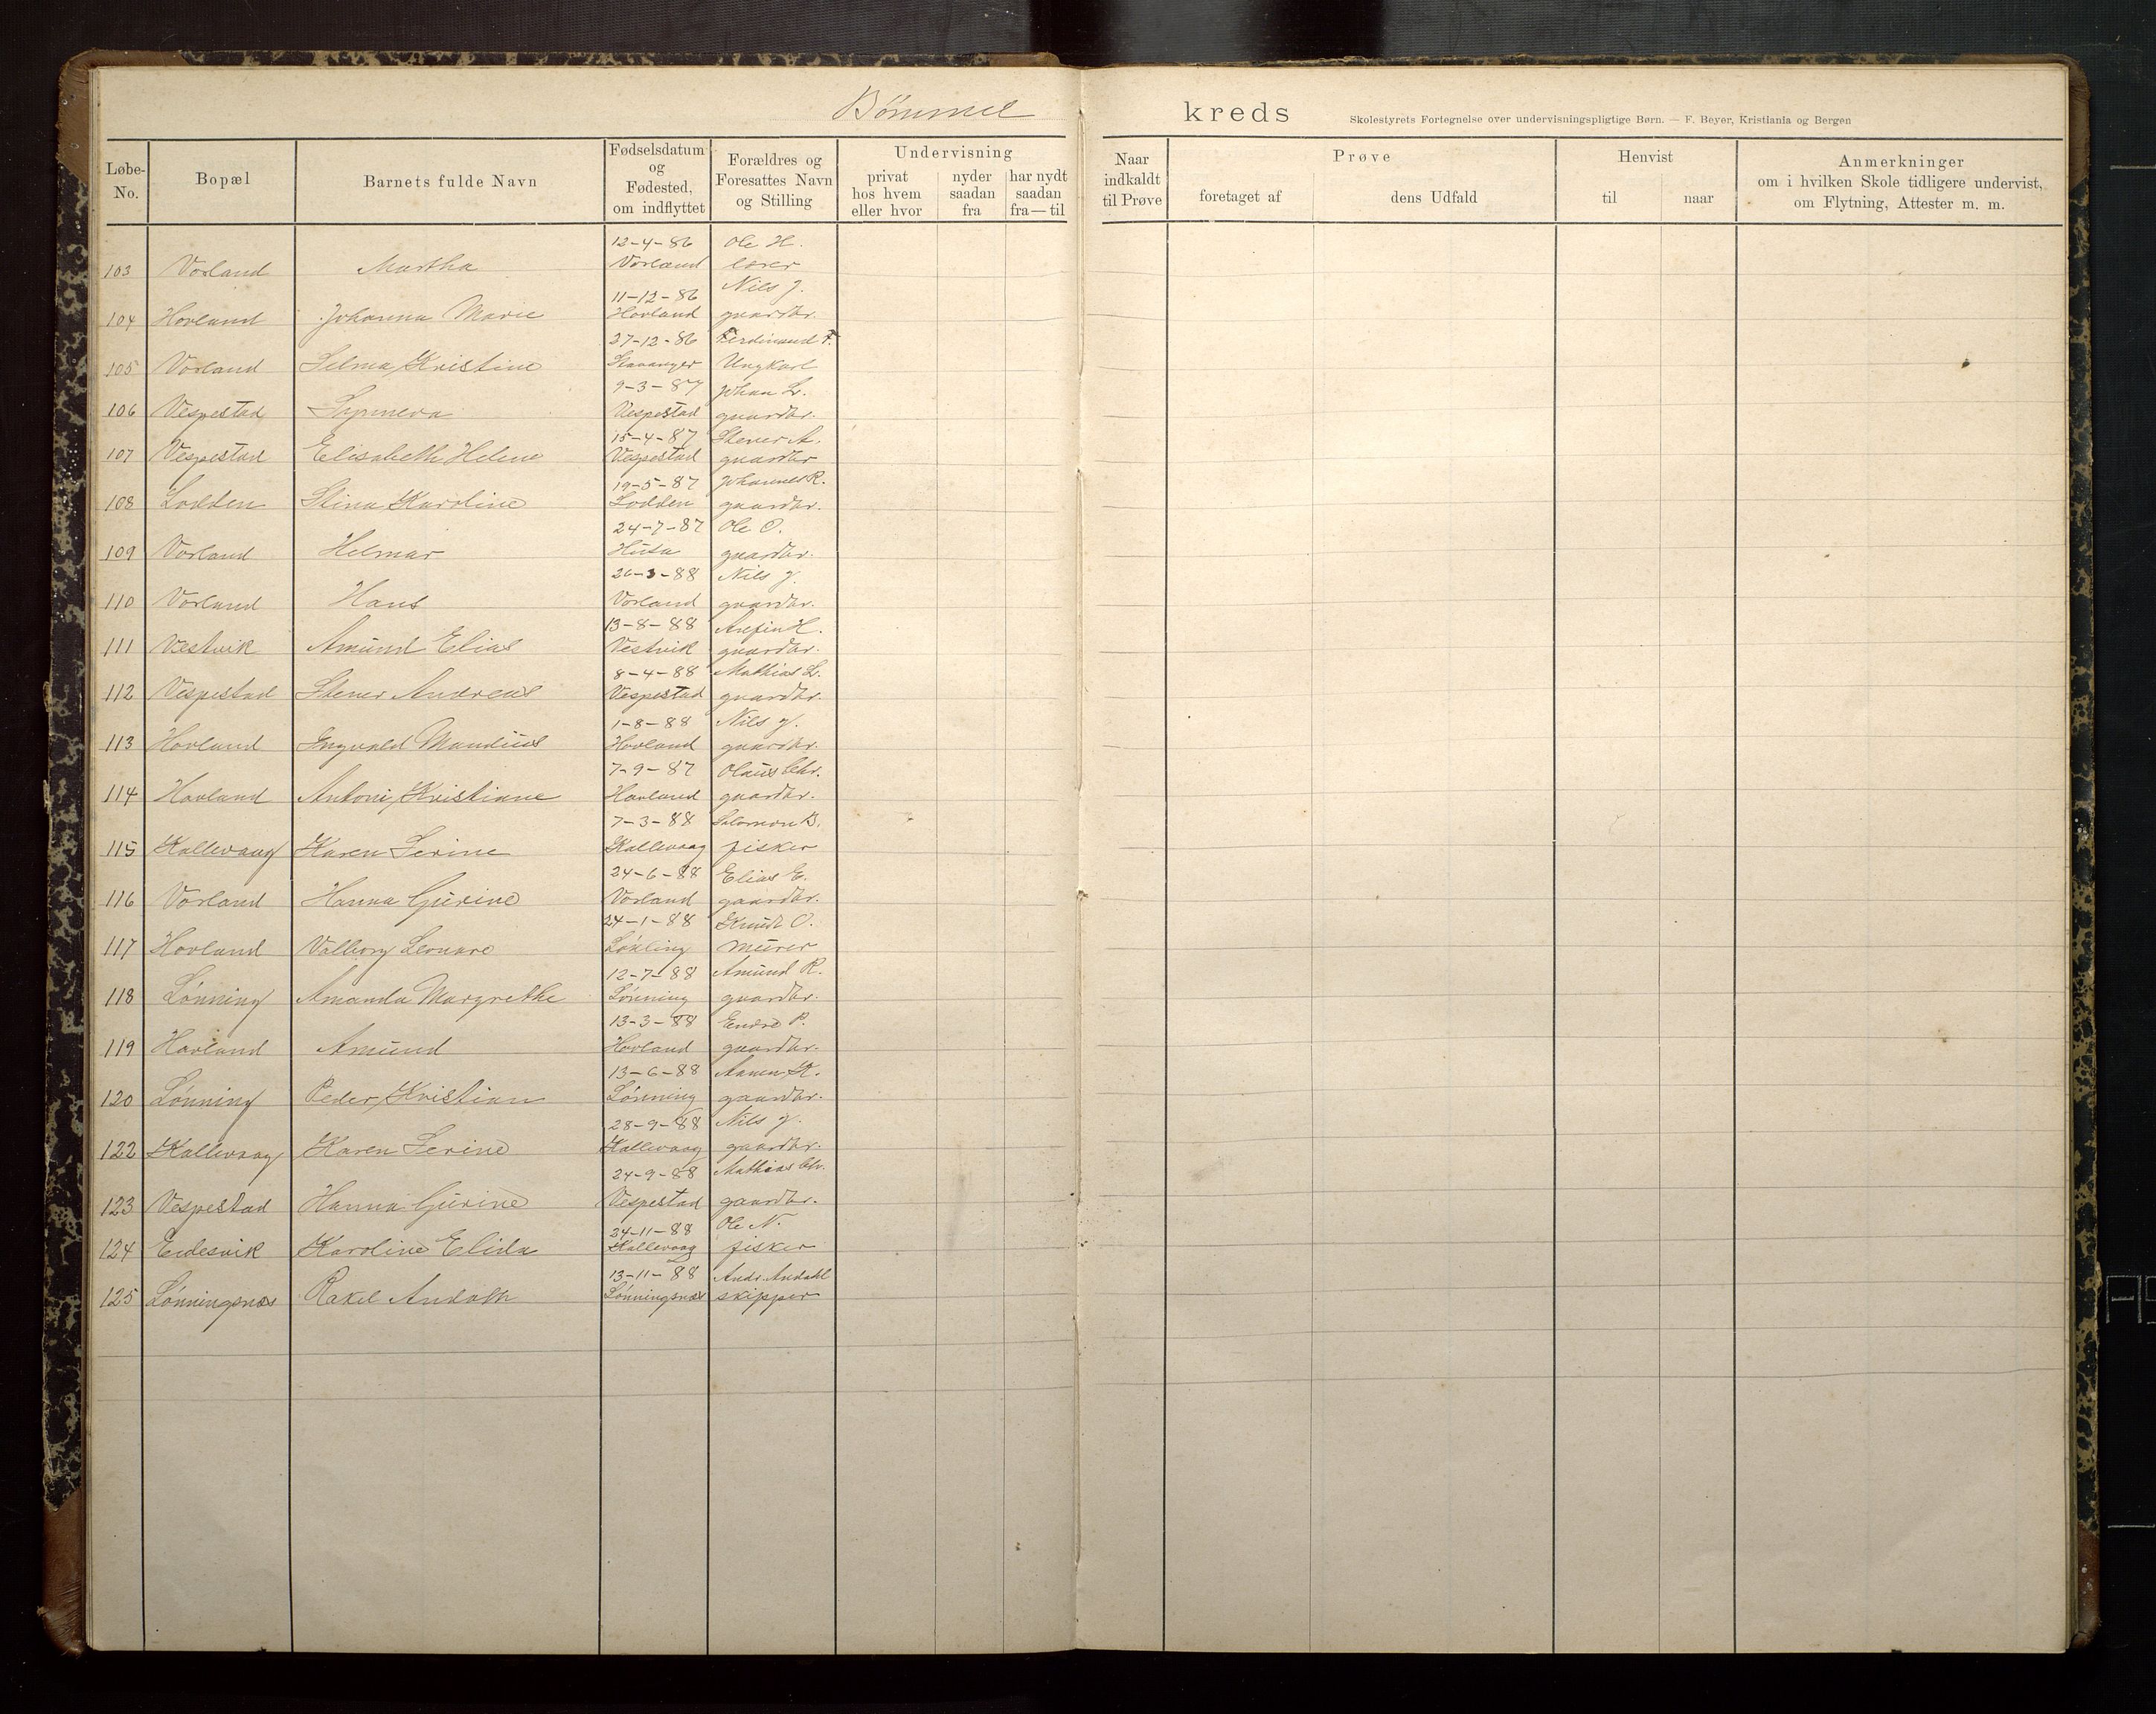 Bømmel kreds Skolestyrets Fortegnelse over undervisningspligtige Børn. — F. Beyer, Kristiania og Bergen
Løbe-No. Bopæl Barnets fulde Navn Fødselsdatum og Fødested, om indflyttet Forældres og Foresattes Navn og Stilling Undervisning privat hos hvem eller hvor nyder saadan fra har nydt saadan fra—til Naar indkaldt til Prøve Prøve foretaget af dens Udfald Henvist til naar Anmerkninger om i hvilken Skole tidligere undervist, om Flytning, Attester m. m.
12-4-86 Ole H.
103 Vorland Martha Vorland lærer
11-12-86 Nils J.
104 Hovland Johanna Marie Hovland gaardbr.
27-12-86 Ferdinand F.
105 Vorland Selma Kristine Stavanger Ungkarl
9-3-87 Johan L.
106 Vespestad Synneva Vespestad gaardbr.
15-4-87 Stener A.
107 Vespestad Elisabeth Helene Vespestad gaardbr
19-5-87 Johannes R.
108 Lodden Stina Karoline Lodden gaardbr.
24-7-87 Ole O.
109 Vorland Helmar gaardbr.
26-3-88 Nils J.
110 Vorland Hans Vorland gaardbr.
13-8-88
111 Vestvik Amund Elias Vestvik gaardbr.
8-4-88 Mathias L.
112 Vespestad Stener Andreas Vespestad gaardbr.
1-8-88 Nils J.
113 Hovland Ingvald Mandius Hovland gaardbr.
7-9-87 Olaus Chr.
114 Hovland Antoni Kristiane Hovland gaardbr.
7-3-88 Salomon B.
115 Kallevaag Karen Serine Kallevaag fisker
24-6-88 Elias E.
116 Vorland Hanna Gurine Vorland gaardbr.
24-1-88 Knudt O.
117 Hovland Valborg Leonare murer
12-7-88 Amund R.
118 Lønning Amanda Margrethe Lønning gaardbr.
13-3-88 Endre P.
119 Hovland Amund Hovland gaardbr.
13-6-88
120 Lønning Peder Kristian Lønning gaardbr.
28-9-88 Nils J.
122 Kallevaag Karen Serine Kallevaag gaardbr.
24-9-88 Mathias Chr.
123 Vespestad Hanna Gurine Vespestad gaardbr.
24-11-88 Ole N.
124 Eidesvik Karoline Elida Kallevaag fisker
13-11-88 Andr. Andahl
125 Lønningsnæs Rakel Lønningsnæs skipper